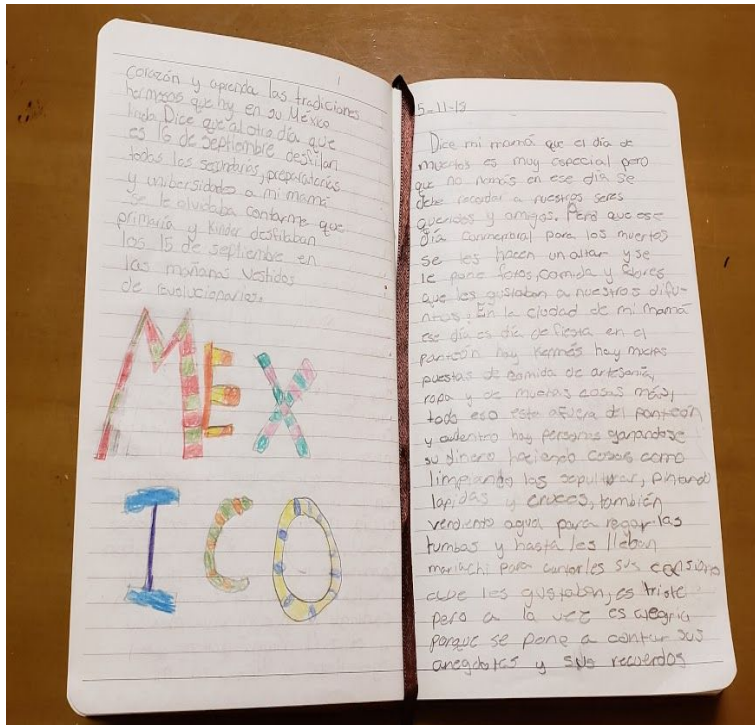 corazón y aprenda las tradiciones
hermosas que hay en su México
lindo. Dice que al otro día que
es 16 de septiembre desfilan
todas las secundarias, preparatorias
y unibersidades a mi mamá
se le olvidaba contarme que
primaria y Kinder desfilaban
los 15 de septiembre en
las mañanas vestidos
de revolucionarios.
MEX
ICO
5-11-19
Dice mi mamá que el día de
muertos es muy especial pero
que no namás en ese día se
debe recordar a nuestros seres
queridos y amigos. Pero que ese
día conmembral para los muertos
se les hacen un altar y se
le pone fotos, comida y flores
que les gustaban a nuestros difu-
ntos, En la ciudad de mi mamá
ese día es día de fiesta en el
panteón hay kermés hay muchas
puestas de comida de artesanía,
ropa y de muchas cosas más,
todo eso esta afuera del panteón
y adentro hay personas ganandose
su dinero haciendo cosas como
limpiando las sepulturar, pintando
lapidas y cruces, también
vendiento agua para regar las
tumbas y hasta les lleban
mariachi para cantorles sus
que les gustaban, es triste
pero a la vez es alegria
porque se pone a contar sus
anegdotas y sus recuerdos